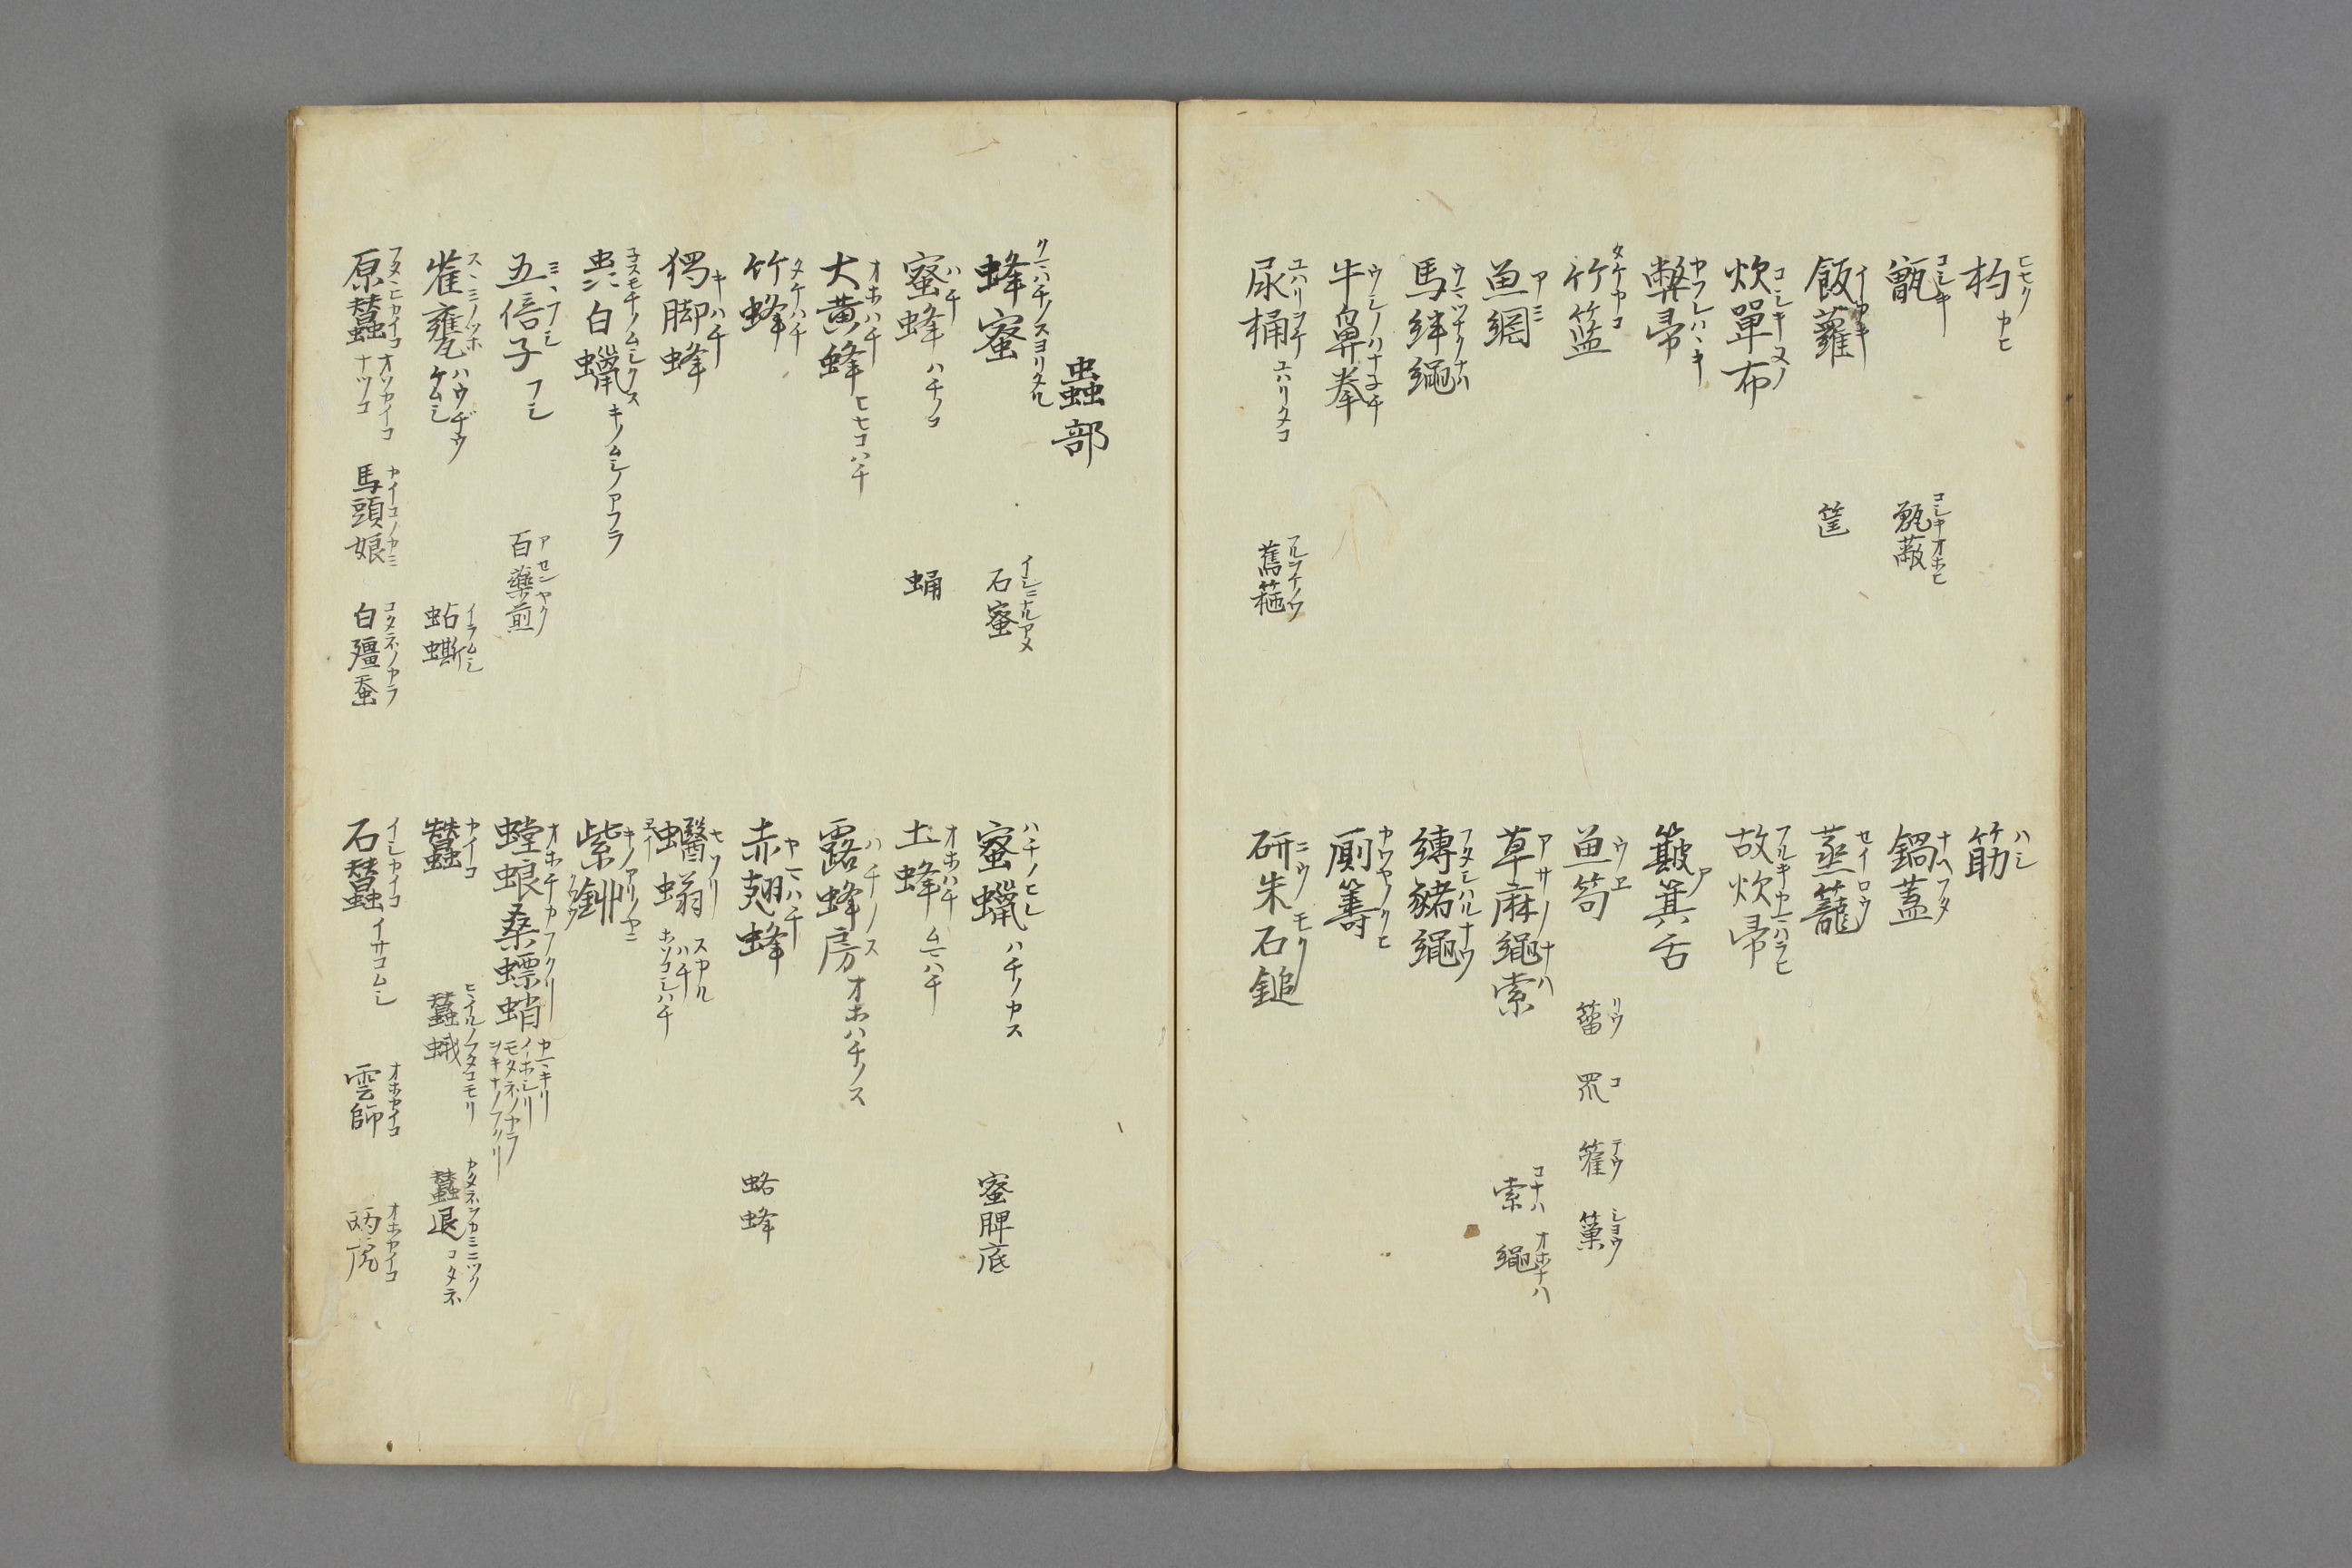 杓 ヒセク カヒ
筯 ハシ
甑 コシキ 甑蔽 コシキオホヒ
鍋蓋 ナヘフタ
飯蘿 イカキ 筐
蒸籠 セイロウ
炊單布 コシキヌノ
故炊帚 フルキカマハラヒ
弊帚 ヤフレハヽキ
簸箕舌 ア
竹籃 タケカコ
魚笱 ウヱ 籗 テウ
魚網 アミ
草麻繩索 アサノナハ 索 コナハ 繩 オホナハ
馬絆繩 ウマツナクナハ
縛豬繩 フタシハルナワ
牛鼻拳 ウシノハナ
厠籌 カワヤノクヒ
尿桶 ユハリヲケ ユハリタコ
研朱石鎚
蟲部
蜂蜜 クマハチノスヨリタル 石蜜 イシニナルアメ
蜜蠟 ハチノヒシ ハチノカス 蜜脾底
蜜蜂 ハチ ハチノコ 蛹
土蜂 オホハチ ムマハチ
大黄蜂 オホハチ ヒセコハチ
露蜂房 ハチノス オホハチノス
竹蜂 タケハチ
赤翅蜂 ヤマハチ 蛒蜂
獨脚蜂 キハチ
蠮螉 スカル ハチ ホソコシハチ
虫白蠟 キノムシノアフラ
紫釧 キノアリヤニ
五倍子 フシ 百藥煎 アセンヤク
螳蜋桑螵蛸 オホチカフクリ
雀甕 スヽミノツホ ハウヂウ ケムシ 蛅蟖 イラムシ
蠶 カイコ 蠶蛾 ヒヽイル 蠶退 コタネ
原蠶 フタヽヒカイコ オソカイコ ナツコ 馬頭娘 カイコノカミ 白殭蚕 コクネノカラ
石蠶 イシカイコ イサコムシ 雲師 オホカイコ 雨虎 オホカイコ